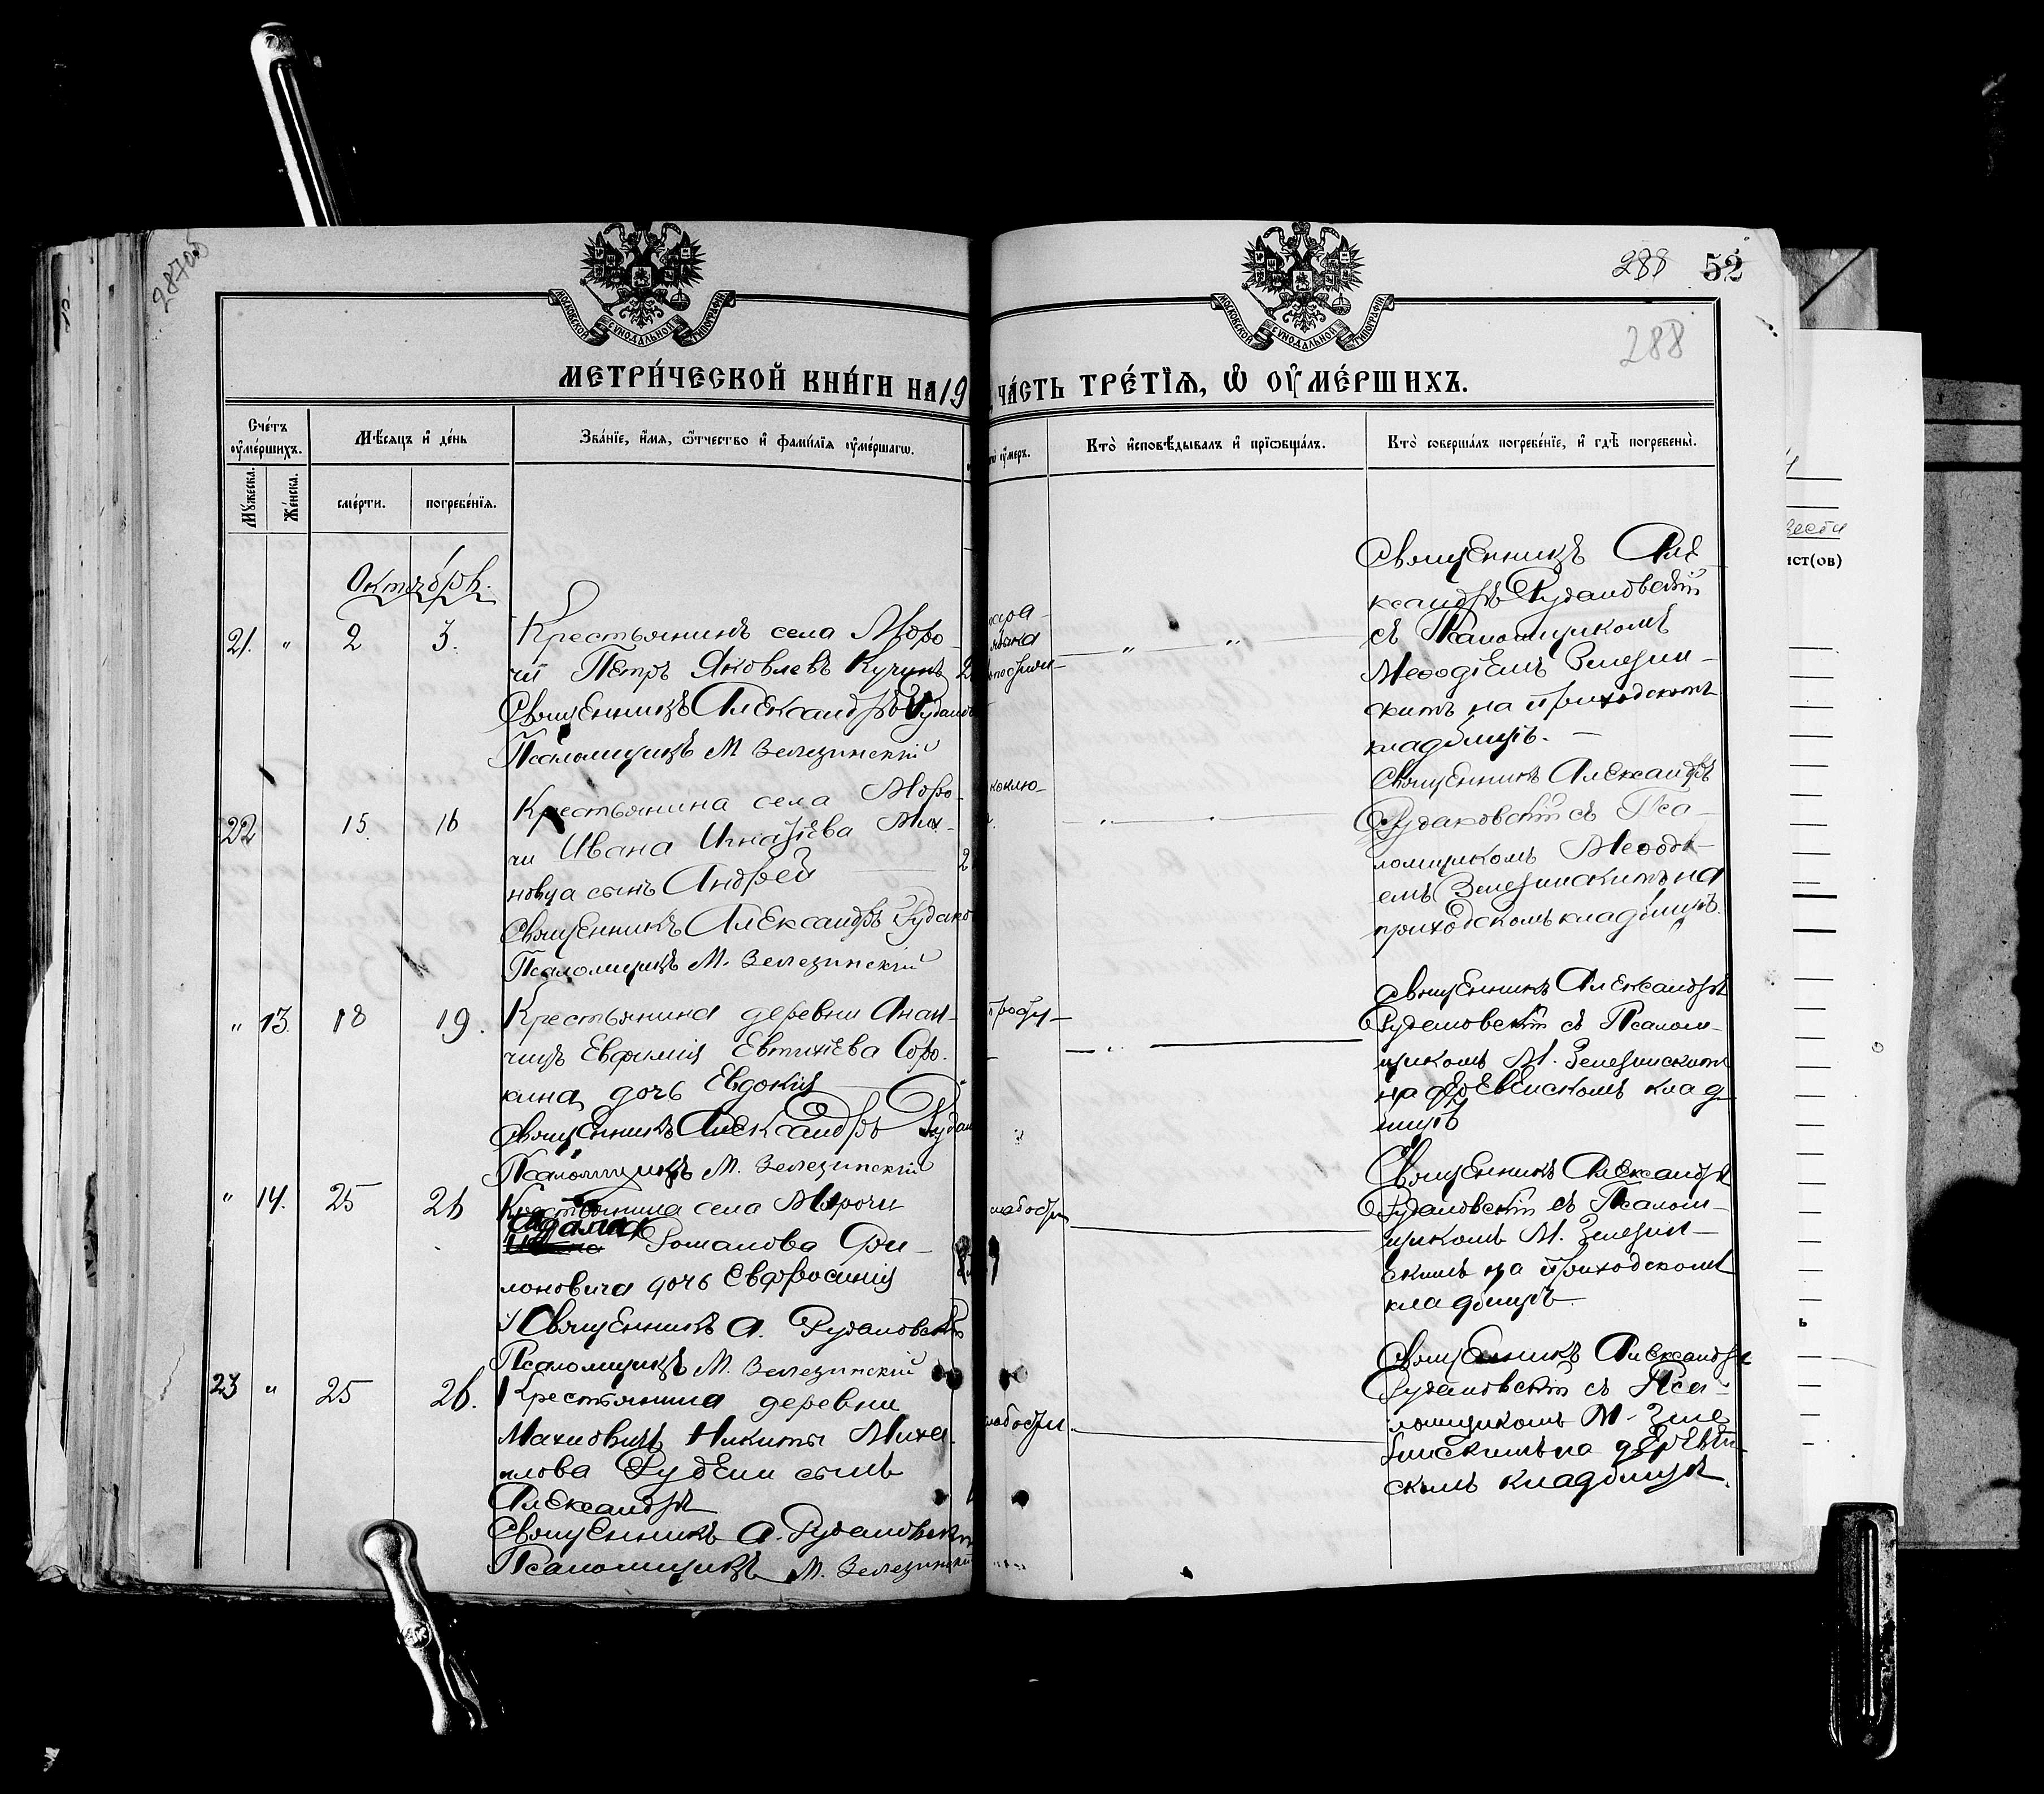 287об
288 52
288
МОСКОВСКОЙ СѴНОДАЛЬНОЙ ТИПОГРАФІИ
МОСКОВСКОЙ СѴНОДАЛЬНОЙ ТИПОГРАФІИ
МЕТРИ́ЧЕСКОЙ КНИ́ГИ НА 19
ЧА́СТЬ ТРЕ́ТІѦ, Ѡ҆ ОУ҆МЕ́РШИХЪ.
Сче́тъ оу҆ме́ршихъ.
Мѣ́сяцъ и҆ де́нь
Зва́нїе, и҆́мя, ѻ҆́тчество и҆ фами́лїя оу҆ме́ршагѡ.
оу҆́меръ.
Кто̀ и҆сповѣ́дывалъ и҆ прїѡбща́лъ.
Кто̀ соверша́лъ погребе́нїе, и҆ гдѣ̀ погребены̀.
Мꙋ́жеска.
Же́нска.
сме́рти.
погребе́нїя.
Октябрь.
21. " 2 3.
Крестьянинъ села Моро-
чи Петръ Яковлевъ Кучунъ
Священникъ Александръ Рудано
Псаломщикъ М Зелезинскій
" "
Священникъ Але-
ксандръ Рудановскій
съ Псаломщикомъ
Меѳодіемъ Зелезин-
скимъ на приходскомъ
кладбищѣ. —
22 15. 16
Крестьянина села Моро-
чи Ивана Игнатіева Мих-
новца сынъ Андрей
Священникъ Александръ Рудано
Псаломщикъ М. Зелезинскій
коклю-
Священникъ Александръ
Рудановскій съ Пса-
ломщикомъ Меѳоді-
емъ Зелезинскимъ на
приходскомъ кладбищѣ.
" 13. 18 19.
Крестьянина деревни Анан-
чицъ Евфимія Евтихіева Соро-
кина дочь Евдокія
Священникъ Александръ Рудан
Псаломщикъ М. Зелезинскій
Священникъ Александръ
Рудановскій съ Псалом-
щикомъ М. Зелезинскимъ
на деревенскомъ клад
бищѣ
" 14. 25 26
Крестьянина села Морочи
Адама
Романова Фи-
лоновича дочь Евфросинія
Священникъ А. Рудановскій
Псаломщикъ М. Зелезинскій
слабости
Священникъ Александръ
Рудановскій съ Псалом-
щикомъ М. Зелезин-
скимъ на приходскомъ
кладбищѣ.
23 " 25 26.
Крестьянина деревни
Махновичъ Никиты Миха
илова Рудени сынъ
Александръ
Священникъ А. Рудановскій
Псаломщикъ М. Зелезинскій
слабости
Священникъ Александръ
Рудановскій съ Пса-
ломщикомъ М. Зеле
зинскимъ на деревен-
скомъ кладбищѣ.
ист(ов)